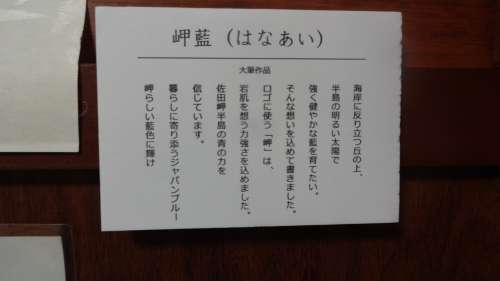 岬藍（はなあい）
大筆作品
海岸に反り立つ丘の上、
半島の明るい太陽で
強く健やかな藍を育てたい。
そんな想いを込めて書きました。
ロゴに使う「岬」は、
岩肌を想う力強さを込めました。
佐田岬半島の青の力を
信じています。
暮らしに寄り添うジャパンブルー
岬らしい藍色に輝け